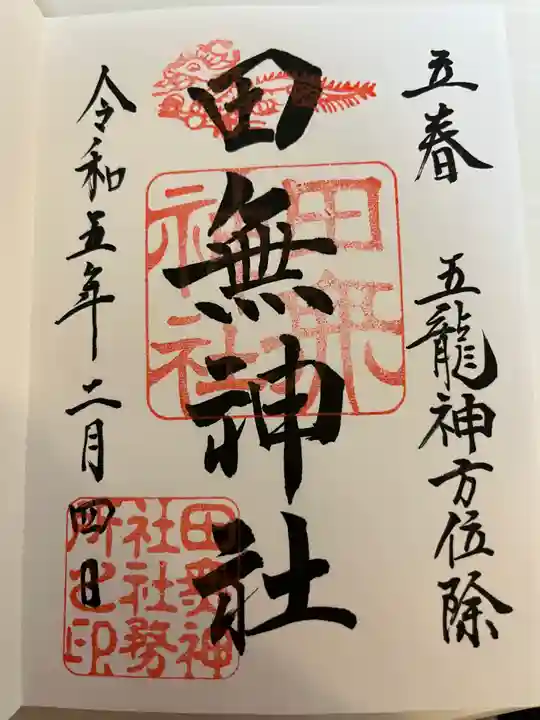 立春 五龍神方位除
田無神社
令和五年二月四日
田無神社
田無神社社務所之印